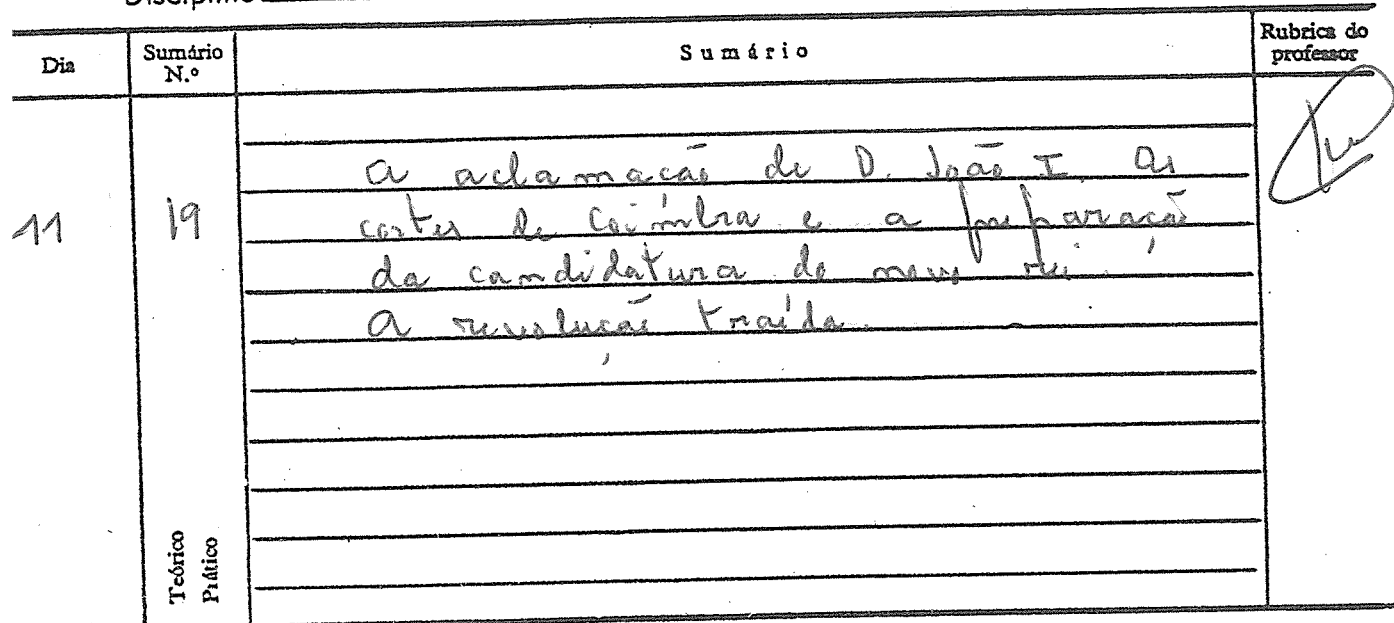 Disciplina
Dia
Sumário N.º
Sumário
Rubrica do professor
11
19
A aclamação de D. João I. As
cortes de Coimbra e a preparação
da candidatura do novo rei.
A revolução traída.
Teórico
Prático